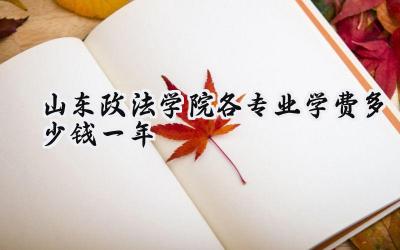 山东政法学院各专业学费多
少钱一年